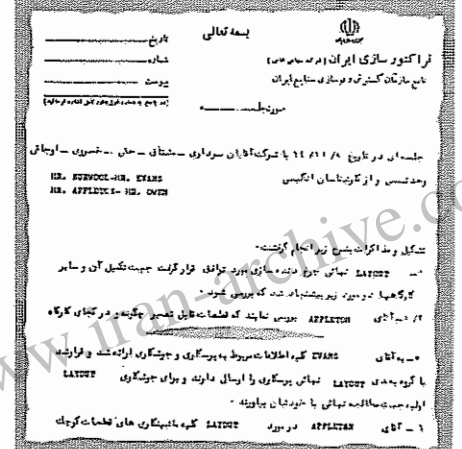 بسمه تعالی
تاریخ
شماره
پیوست
تراکتور سازی ایران
تابع سازمان گسترش و نوسازی صنایع ایران
صورتجلسه
جلسه ای در تاریخ با شرکت آقایان سرداری - مشتاق - حقی - خسروی - اوجاقی
و از کارشناسان انگلیسی
MR. EVANS
MR. APPLETON- MR. OWEN
تشکیل و مذاکرات بشرح زیر انجام گرفت:-
LAYOUT نهائی چرخ دنده سازی مورد توافق قرار گرفت جهت تکمیل آن و سایر
کارگاهها دو مورد زیر پیشنهاد شد که بررسی شود -
آقای APPLETON بررسی نمایند که قطعات قابل تعمیر چگونه و در کجای کارگاه
به آقای EVANS کلیه اطلاعات مربوط به پرسکاری و جوشکاری ارائه شد و قرار شد
با گروه بعدی LAYOUT نهائی پرسکاری را ارسال دارند و برای جوشکاری LAYOUT
اولیه جهت مطالعه نهائی با خودشان بیاورند -
آقای APPLETON در مورد LAYOUT کلیه ماشینکاری های قطعات کوچک
www.iran-archive.co